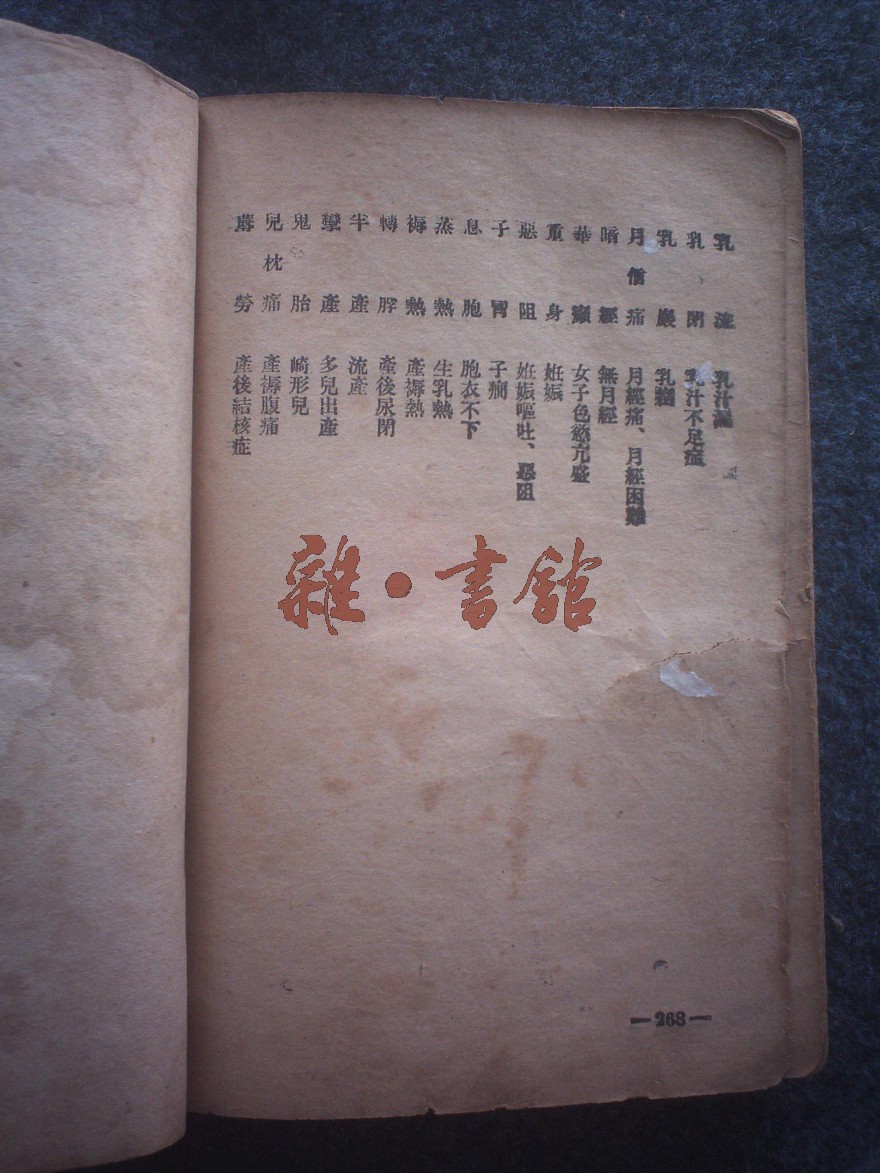 乳流 乳汁漏
乳閉 乳汁不足症
乳巖 乳癌
月信痛 月經痛、月經困難
暗經 無月經
華癲 女子色慾亢盛
重身 姙娠
惡阻 姙娠嘔吐、惡阻
子冒 子癇
息胞 胞衣不下
蒸熱 生乳熱
褥熱 產褥熱
轉脬 產後尿閉
半產 流產
孿產 多兒出產
鬼胎 畸形兒
兒枕痛 產褥腹痛
蓐勞 產後結核症
雜·書館
—268—